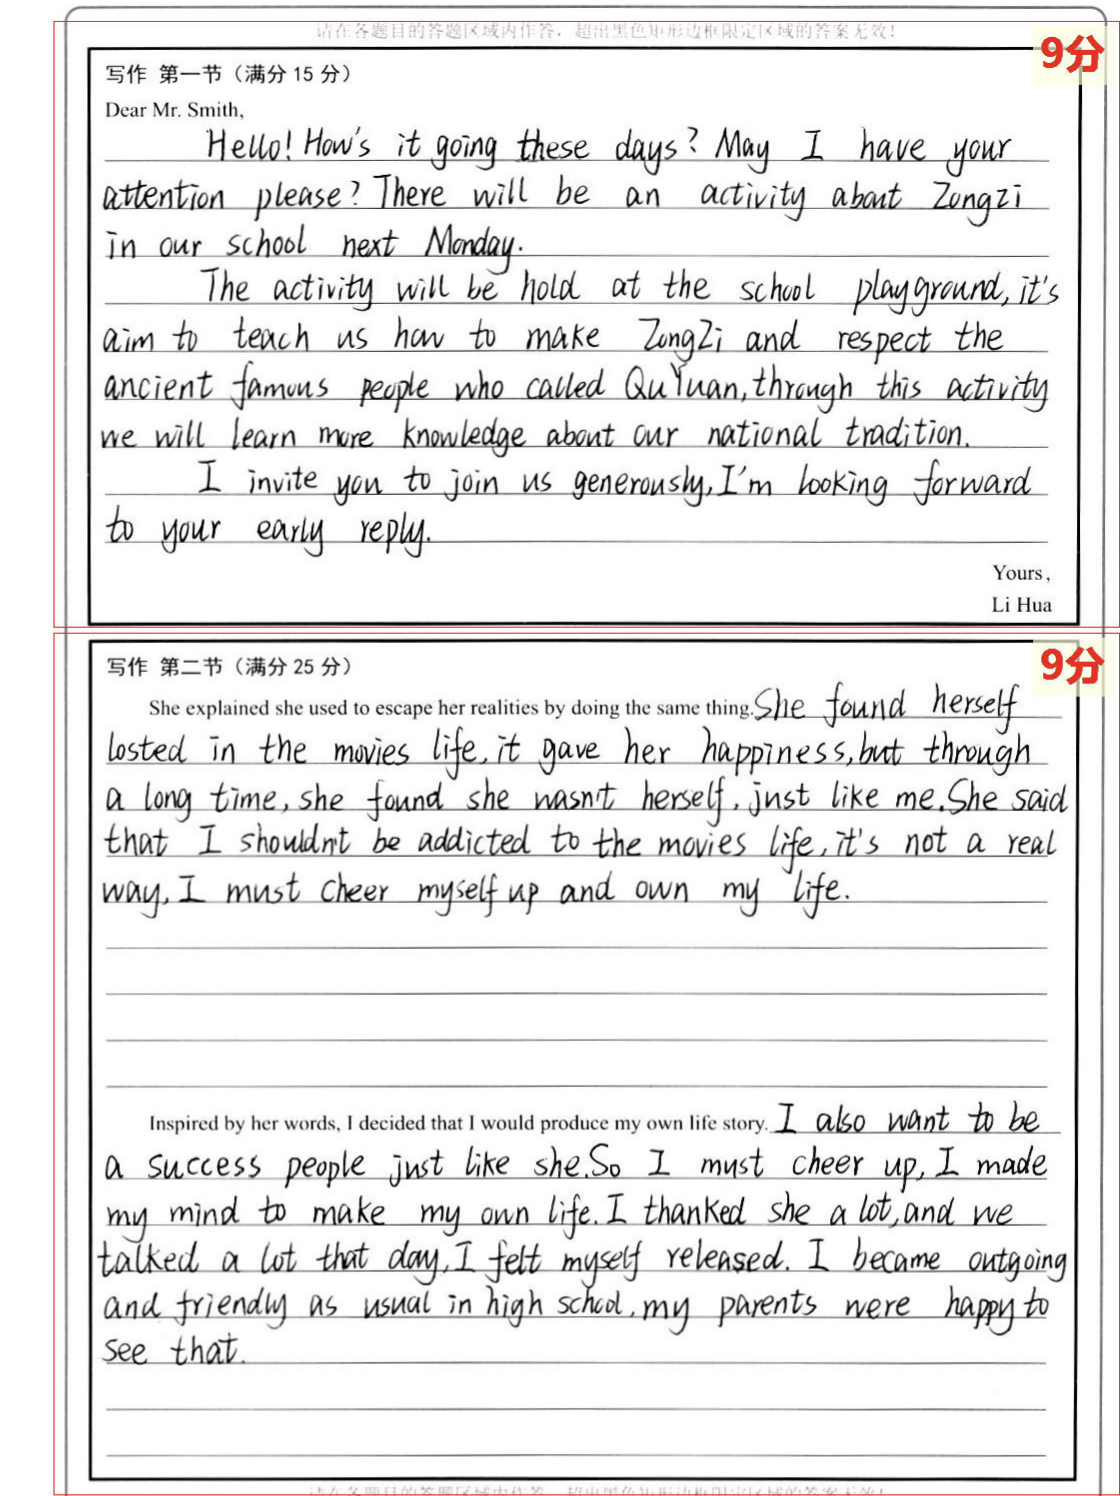 请在各题目的答题区域内作答，超出黑色矩形边框限定区域的答案无效！
9分
写作 第一节（满分 15 分）
Dear Mr. Smith,
Hello! How's it going these days? May I have your
attention please? There will be an activity about Zongzi
in our school next Monday.
The activity will be hold at the school playground, it's
aim to teach us how to make ZongZi and respect the
ancient famous people who called Qu Yuan, through this activity
we will learn more knowledge about our national tradition.
I invite you to join us generously, I'm looking forward
to your early reply.
Yours,
Li Hua
9分
写作 第二节（满分 25 分）
She explained she used to escape her realities by doing the same thing. She found herself
losted in the movies life, it gave her happiness, but through
a long time, she found she wasn't herself, just like me. She said
that I shouldn't be addicted to the movies life, it's not a real
way, I must cheer myself up and own my life.
Inspired by her words, I decided that I would produce my own life story. I also want to be
a success people just like she. So I must cheer up, I made
my mind to make my own life. I thanked she a lot, and we
talked a lot that day, I felt myself released. I became outgoing
and friendly as usual in high school, my parents were happy to
see that.
请在各题目的答题区域内作答，超出黑色矩形边框限定区域的答案无效！